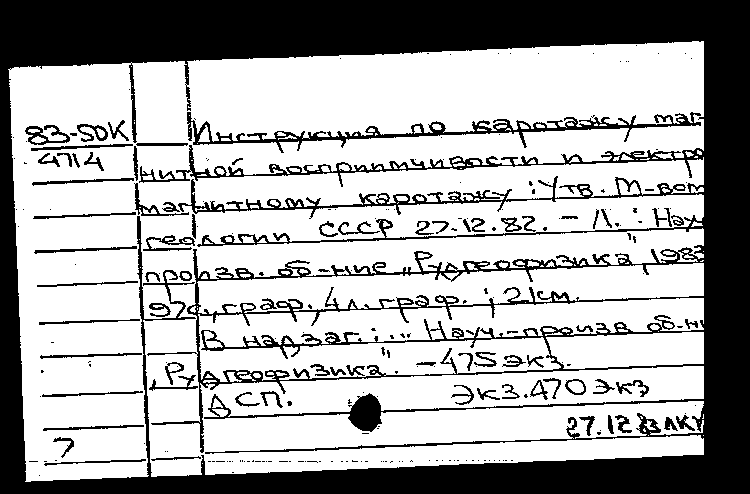 83-5DK
4714
Инструкция по каротажу маг-
нитной восприимчивости и электро
магнитному каротажу : Утв. М-вом
геологии СССР 27.12.82. - Л. : Науч
произв. об-ние „Рудгеофизика", 1983
97с., граф., 4 л. граф. ; 21см.
В надзаг.: „ Науч.-произв об-ни
„Рудгеофизика". - 475 экз.
ДСП. Экз. 470 экз
7 27.12.83 ЛКУ